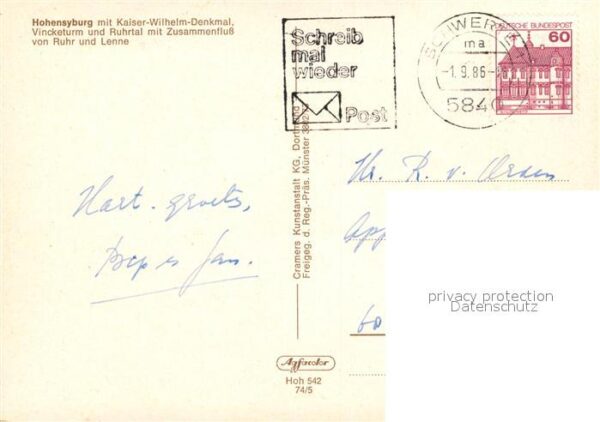 Hohensyburg mit Kaiser-Wilhelm-Denkmal,
Vincketurm und Ruhrtal mit Zusammenfluß
von Ruhr und Lenne
Schreib
mal
wieder
Post
SCHWERTE
ma
-1.9.86-
5840
DEUTSCHE BUNDESPOST
60
Hr. R. v. Orden
Hart. groets,
Bep en Jan.
Cramers Kunstanstalt KG, Dortmund
Freigeg. d. Reg.-Präs. Münster
privacy protection
Datenschutz
Agfacolor
Hoh 542
74/5